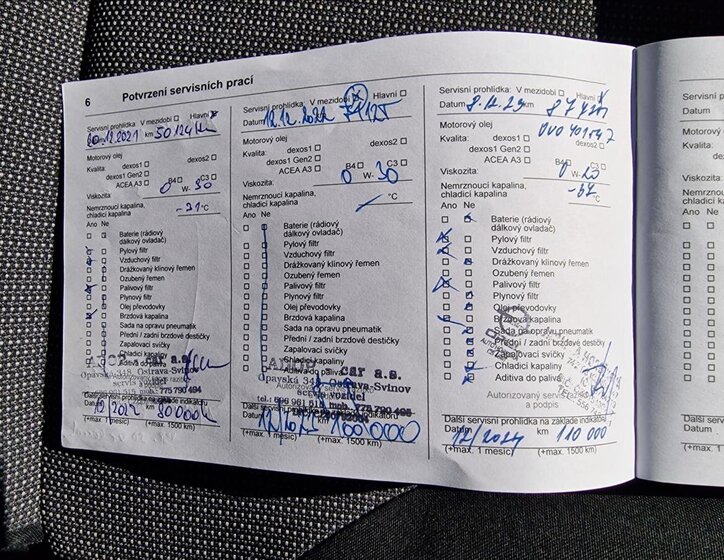 6 Potvrzení servisních prací
Servisní prohlídka: V mezidobí Hlavní
Datum 20.12.2021 km 50124
Motorový olej
Kvalita: dexos1 dexos2
dexos1 Gen2
ACEA A3 B4 C3
Viskozita: 0 W- 30
Nemrznoucí kapalina,
chladicí kapalina
-31 °C
Ano Ne
Baterie (rádiový
dálkový ovladač)
Pylový filtr
Vzduchový filtr
Drážkovaný klínový řemen
Ozubený řemen
Palivový filtr
Plynový filtr
Olej převodovky
Brzdová kapalina
Sada na opravu pneumatik
Přední / zadní brzdové destičky
Zapalovací svíčky
Chladicí kapaliny
Aditiva do paliva
car a.s.
Opavská Ostrava-Svinov
servis
mob.: 775 790 494
Další servisní prohlídka na základě indikátoru
2022 km 80000
(+max. 1 měsíc) (+max. 1500 km)
Servisní prohlídka: V mezidobí Hlavní
Datum 12.12.2022 71125
Motorový olej
Kvalita: dexos1 dexos2
dexos1 Gen2
ACEA A3 B4 C3
Viskozita: 0 W- 30
Nemrznoucí kapalina,
chladicí kapalina
°C
Ano Ne
Baterie (rádiový
dálkový ovladač)
Pylový filtr
Vzduchový filtr
Drážkovaný klínový řemen
Ozubený řemen
Palivový filtr
Plynový filtr
Olej převodovky
Brzdová kapalina
Sada na opravu pneumatik
Přední / zadní brzdové destičky
Zapalovací svíčky
Chladicí kapaliny
Aditiva do paliva
car a.s.
Opavská Ostrava-Svinov
servis vozidel
mob. 775 790 495
Další servisní prohlídka na základě indikátoru
Datum 100000
(+max. 1 měsíc) (+max. 1500 km)
Servisní prohlídka: V mezidobí Hlavní
Datum km
Motorový olej
Kvalita: dexos1 dexos2
dexos1 Gen2
ACEA A3 B4 C3
Viskozita: 0 W-
Nemrznoucí kapalina,
chladicí kapalina
-37 °C
Ano Ne
Baterie (rádiový
dálkový ovladač)
Pylový filtr
Vzduchový filtr
Drážkovaný klínový řemen
Ozubený řemen
Palivový filtr
Plynový filtr
Olej převodovky
Brzdová kapalina
Sada na opravu pneumatik
Přední / zadní brzdové destičky
Zapalovací svíčky
Chladicí kapaliny
Aditiva do paliva
Autorizovaný servis razítko
a podpis
Další servisní prohlídka na základě indikátoru
Datum 12/2024 km 110 000
(+max. 1 měsíc) (+max. 1500 km)